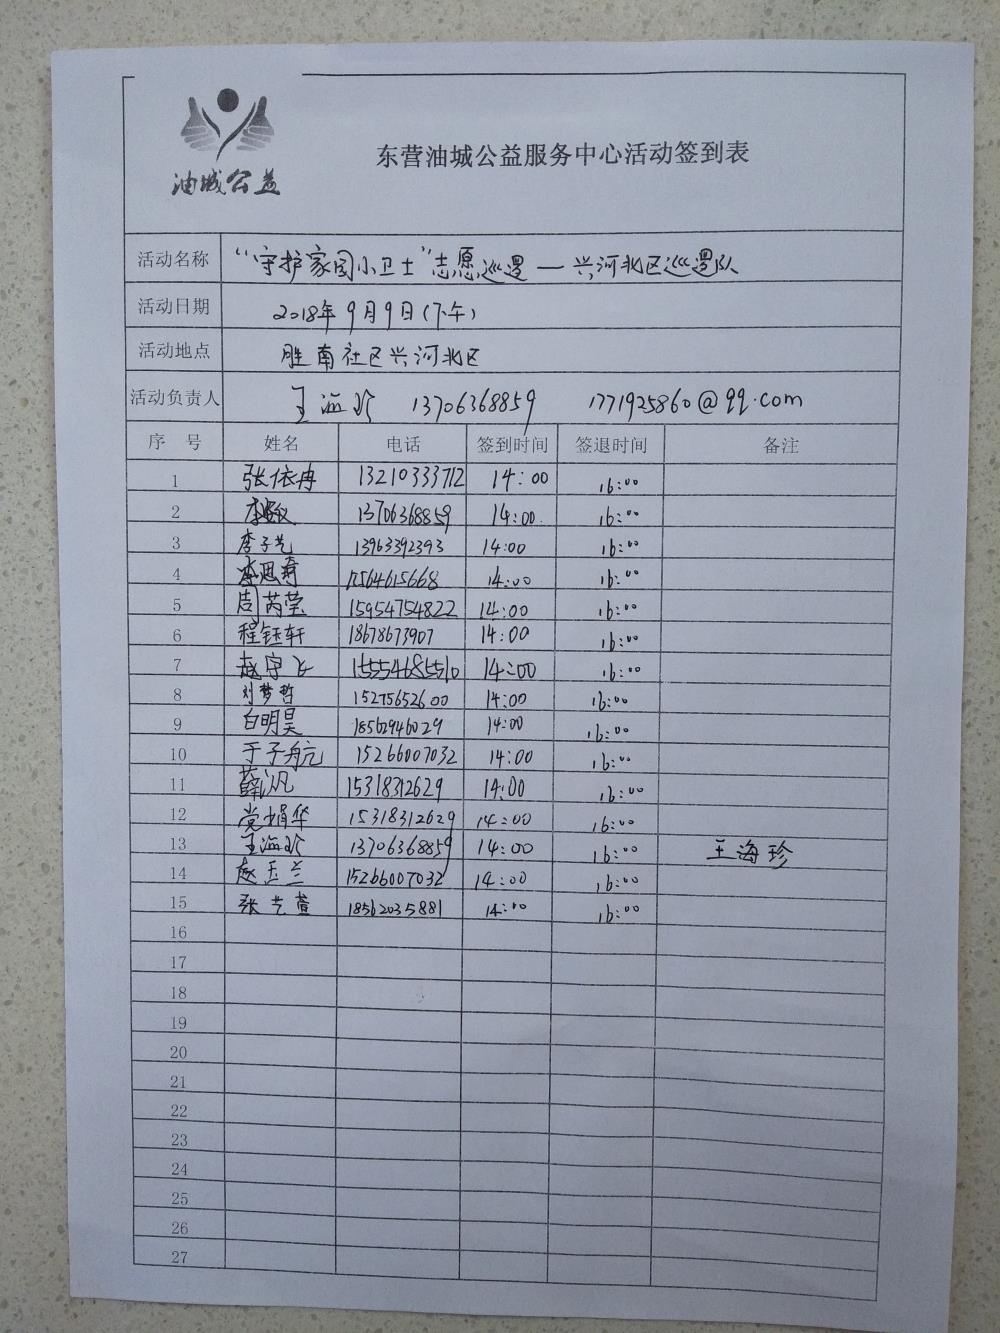 油城公益
东营油城公益服务中心活动签到表
活动名称 “守护家园小卫士”志愿巡逻—兴河北区巡逻队
活动日期 2018年9月9日(下午)
活动地点 胜南社区兴河北区
活动负责人 王海珍 13706368859 1771925860@qq.com
序 号 姓名 电话 签到时间 签退时间 备注
1 张依冉 13210333712 14:00 16:00
2 李敏 13706368859 14:00 16:00
3 李子艺 13963392393 14:00 16:00
4 李思齐 17564615668 14:00 16:00
5 周芮莹 15954754822 14:00 16:00
6 程钰轩 18678673907 14:00 16:00
7 赵宇飞 15554685510 14:00 16:00
8 刘梦哲 15275652600 14:00 16:00
9 白明昊 18562946029 14:00 16:00
10 于子航 15266007032 14:00 16:00
11 薛汎 15318312629 14:00 16:00
12 党娟华 15318312629 14:00 16:00
13 王海珍 13706368859 14:00 16:00 王海珍
14 赵玉兰 15266007032 14:00 16:00
15 张艺萱 18562035881 14:00 16:00
16
17
18
19
20
21
22
23
24
25
26
27